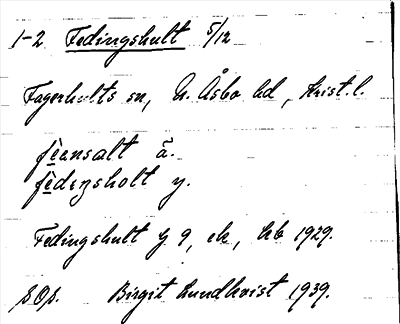 1-2 Fedingshult 5/12
Fagerhults sn, N. Åsbo hd, Krist. l.
fèensalt ä.
fèdɪŋsholt y.
Fedingshult y 9, ek, hb 1929.
SOS. Birgit Lundkvist 1939.